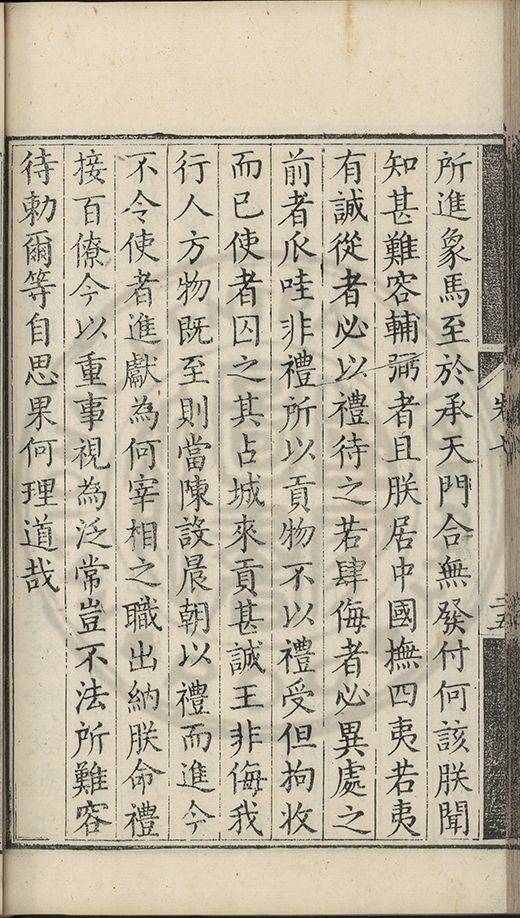 所進象馬至於承天門合無發付何該朕聞
知甚難容輔弼者且朕居中國撫四夷若夷
有誠從者必以禮待之若肆侮者必異處之
前者爪哇非禮所以貢物不以禮受但拘收
而已使者囚之其占城來貢甚誠王非侮我
行人方物既至則當陳設晨朝以禮而進今
不令使者進獻為何宰相之職出納朕命禮
接百僚今以重事視為泛常豈不法所難容
待勅爾等自思果何理道哉
卷七